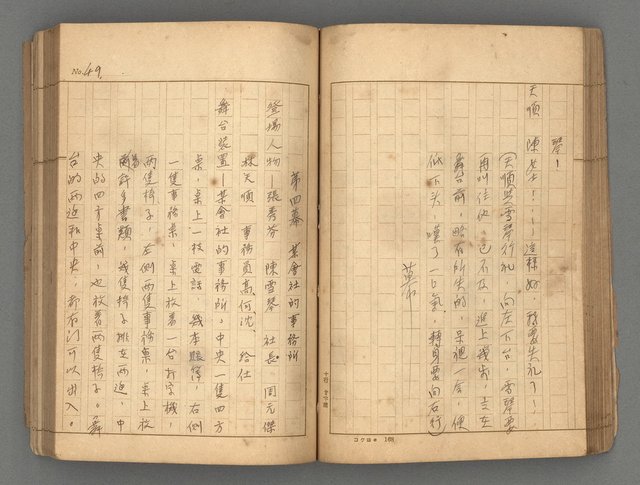 琴！
天順　陳先生！……這樣好　我要失礼了！
（天順與雪琴行礼，向左下台，雪琴要
再叫住他，已不及，進上幾步，立在
舞台前，略有所失的，呆想一會，便
低下头，嘆了一口氣，轉身要向右行）
幕
コクヨ 168
No. 49.
第四幕　某會社的事務所
登場人物—張秀芬　陳雪琴　社長　周元傑
林天順　事務員高、何、沈、給仕
舞台裝置—某會社的事務所。中央一隻四方
桌，桌上一枝電話，幾本賬簿，右側
一隻事務桌，桌上放着一台打字機，
兩隻椅子，左側兩隻事務桌，桌上放
許多書類，幾隻椅子排在兩边，中
央的四方桌前，也放着兩隻椅子。舞
台的兩边和中央，都有门可以出入。